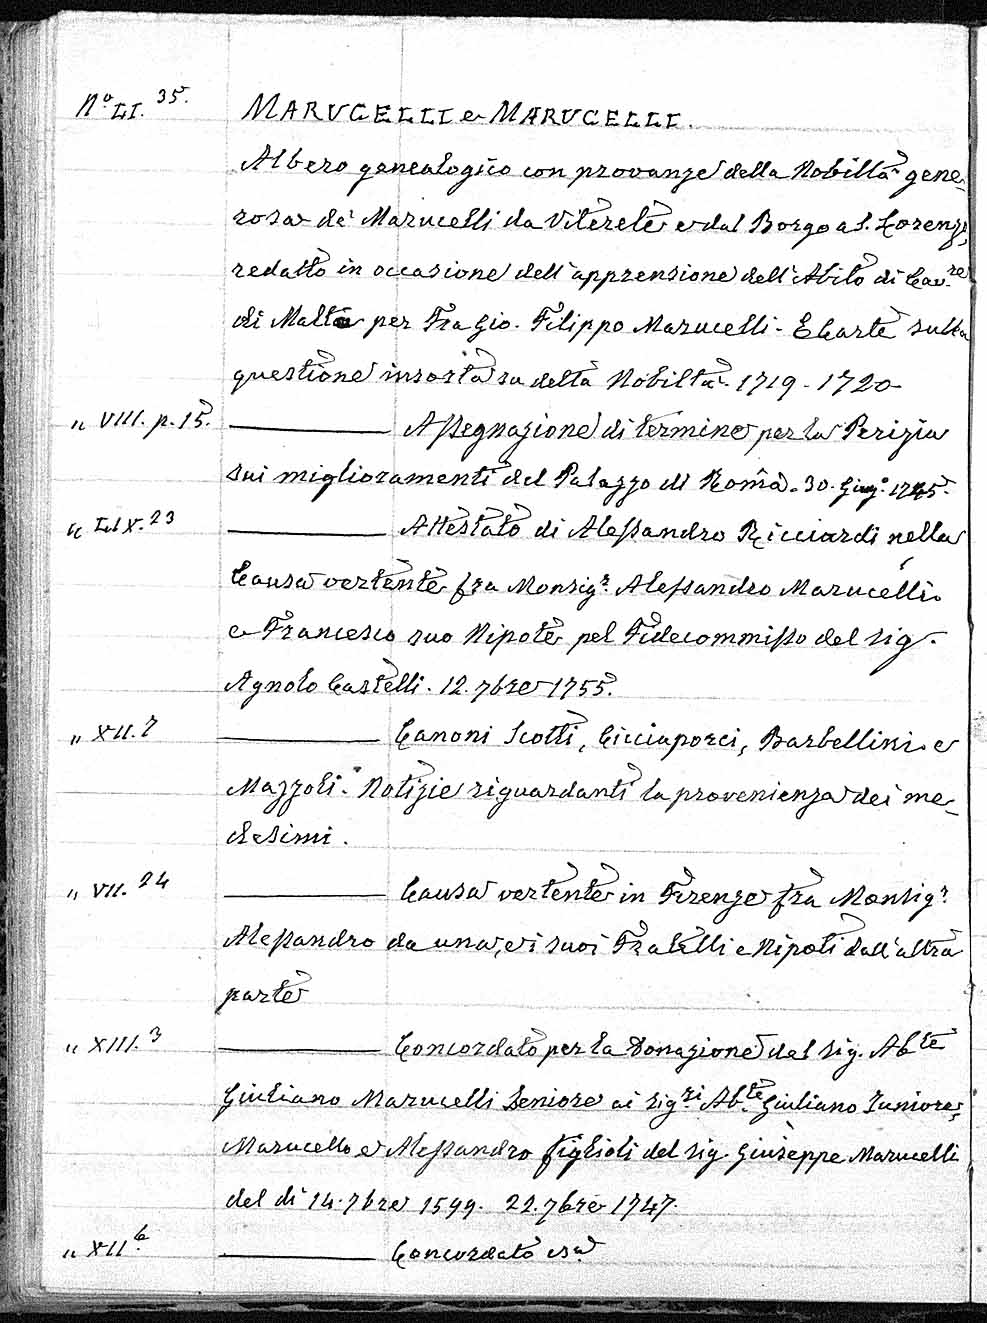 Nº LI. 35. MARUCELLI e MARUCELLI.
Albero genealogico con provanze della Nobiltà gene-
rosa de' Marucelli da Viterete e dal Borgo a S. Lorenzo,
redatto in occasione dell'apprensione dell'Abito di Cav.re
di Malta per Fra Gio. Filippo Marucelli - E Carte sulla
questione insorta su detta Nobiltà. 1719 - 1720
" VIII. p. 15. ——— Assegnazione di termine per la Perizia
sui miglioramenti del Palazzo di Roma. 30. Giug.º 1745.
" LIX. 23 ——— Attestato di Alessandro Ricciardi nella
Causa vertente fra Monsig.r Alessandro Marucelli
e Francesco suo Nipote pel Fidecommisso del sig.
Agnolo Castelli. 12. 7bre 1755.
" XII. 7 ——— Canoni Scotti, Cicciaporci, Barbellini e
Mazzoli. Notizie riguardanti la provenienza dei me-
desimi.
" VII. 24 ——— Causa vertente in Firenze fra Monsig.r
Alessandro da una, e i suoi Fratelli e Nipoti dall'altra
parte
" XIII. 3 ——— Concordato per la Donazione del sig. Ab.te
Giuliano Marucelli Seniore ai sig.ri Ab.te Giuliano Juniore,
Marucello e Alessandro figlioli del sig. Giuseppe Marucelli
del dì 14. 7bre 1599. 22. 7bre 1747.
" XII. 6 ——— Concordato